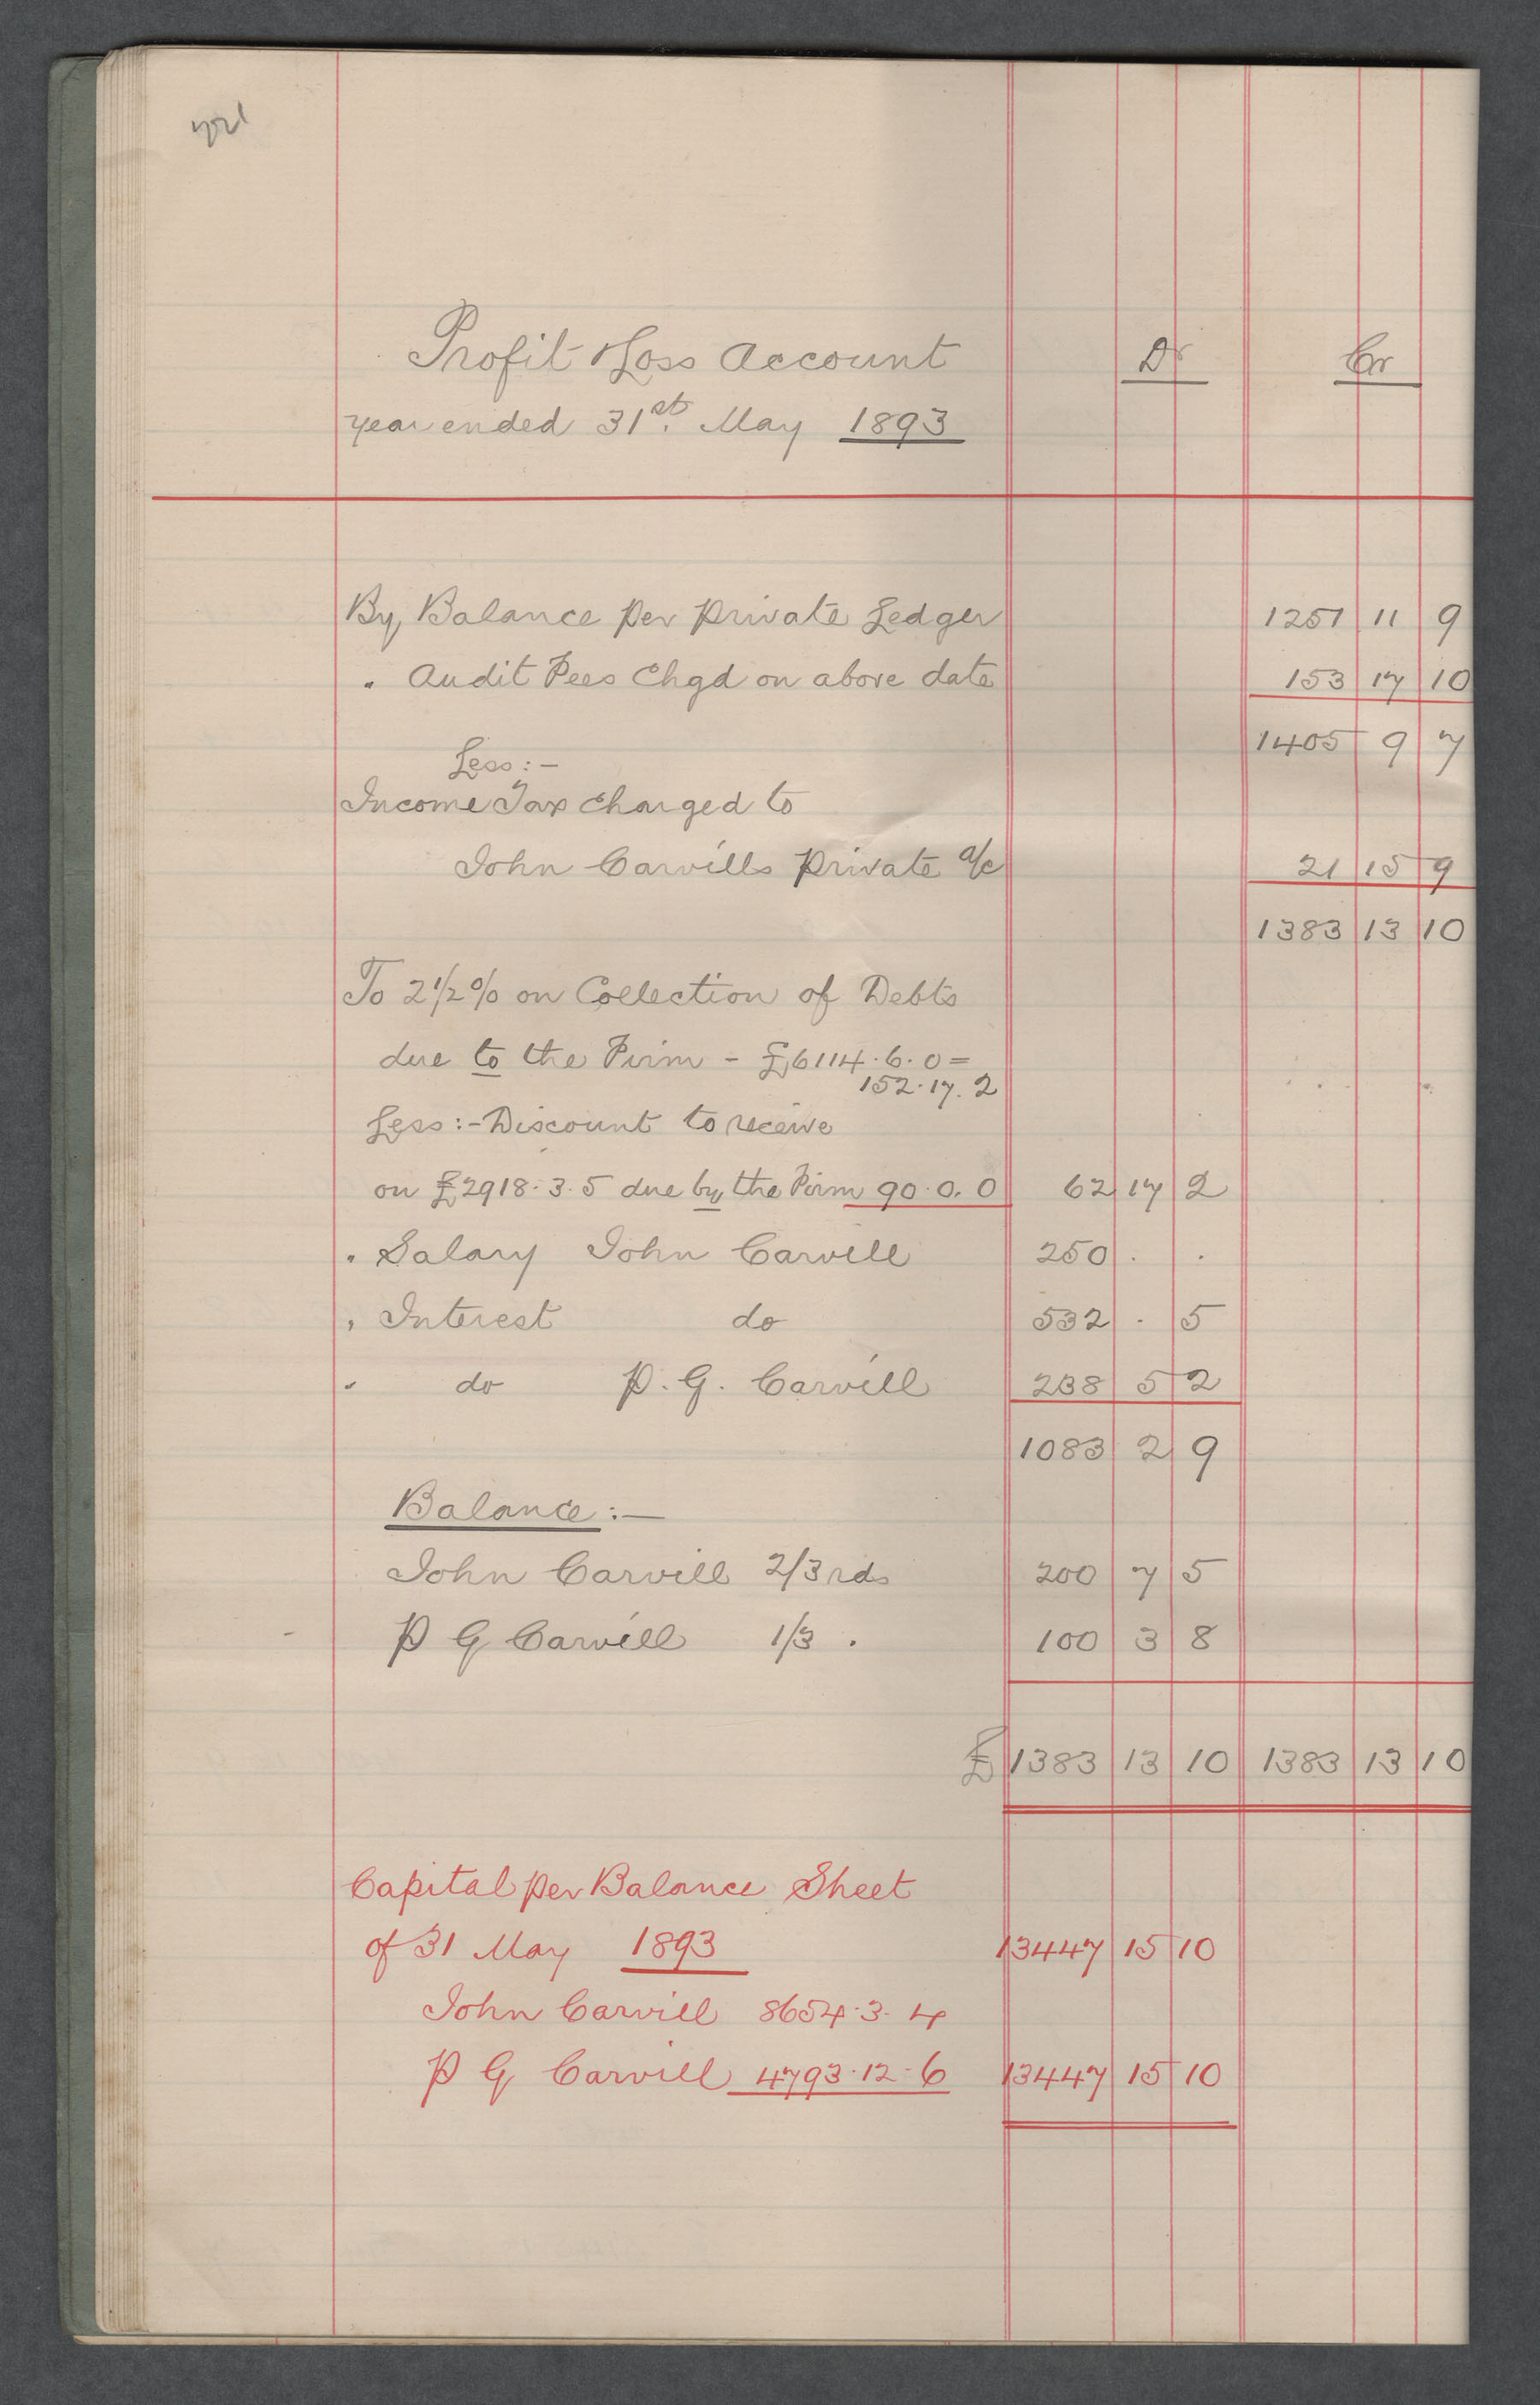 Profit & Loss Account Dr Cr
year ended 31st. May 1893
By Balance per Private Ledger 1251 11 9
" Audit Fees Chgd on above date 153 17 10
1405 9 7
Less:-
Income Tax Charged to
John Carvills Private a/c 21 15 9
1383 13 10
To 2 1/2 % on Collection of Debts
due to the Firm - £6114.6.0 =
152.17.2
Less:- Discount to receive
on £2918.3.5 due by the Firm 90.0.0 62 17 2
" Salary John Carvill 250 . .
" Interest do 532 . 5
" do P. G. Carvill 238 5 2
1083 2 9
Balance:-
John Carvill 2/3rds 200 7 5
P G Carvill 1/3 . 100 3 8
£ 1383 13 10 1383 13 10
Capital per Balance Sheet
of 31 May 1893 13447 15 10
John Carvill 8654.3.4
P G Carvill 4793.12.6 13447 15 10